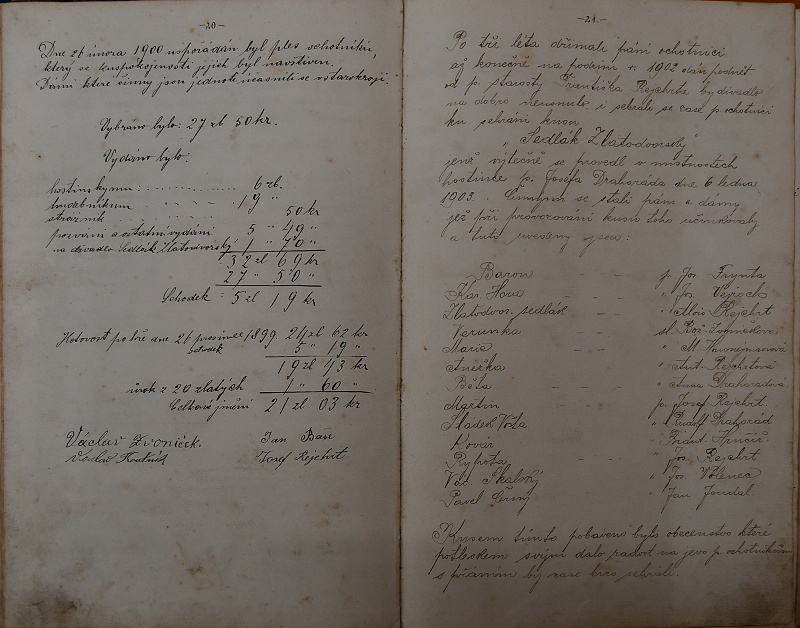 -20-
Dne 26 února 1900 uspořádán byl ples ochotníků,
který se k uspokojenosti jejich byl navštíven.
Dámi které činny jsou jednotě účasnili se v starokroji.
Vybráno bylo: 27 zl 50 kr.
Vydáno bylo:
hostinskymu: 6 zl.
hudebníkum 19 "
strážník 50 kr
pozvání a ostatní vydání 5 " 49 "
na divadlo Sedlák Zlatodvorský 1 " 70 "
32 zl 69 kr
27 " 50 "
Schodek = 5 zl 19 kr
Hotovost po hře dne 26 prosince 1899. 24 zl 62 kr
schodek 5 " 19 "
19 zl 43 kr
úrok z 20 zlatých 1 " 60 "
Celkové jmění 21 zl 03 kr
Václav Zvoníček. Jan
Josef Rejchrt
-21-
Po tři léta dřímali páni ochotníci
až konečně na podzim r. 1902 dán podnět
od p. starosty Františka Rejchrta by divadlo
na dobro neusnulo i sebrali se zase p. ochotníci
ku sehrání kusu
„Sedlák Zlatodvorský"
jenž výtečně se provedl v místnostech
hostince p. Josefa Drahoráda dne 6 ledna
1903. Činným se stali páni a dámy
jež při provozování kusu toho učinkovaly
a tuto uvedeny jsou:
Baron p. Jos. Frynta
Kar. Hora " Jos.
Zlatodvor. sedlák " Alois Rejchrt
Verunka sl. Bož.
Marie " M.
Anežka " Ant. Rejchrtová
Běta " Anna Drahorádová
Martin p. Josef Rejchrt.
Sládek Vojta " Rudolf Drahorád
Kovář " Frant. Hrnčíř
Rypota " Jos. Rejchrt
Vác. Skalský " Jos. Volenec
Pavel Černý " Jan Joudal
Kusem tímto pobaveno bylo obecenstvo které
potleskem svým dalo radost na jevo p. ochotníkům
s přáním by zase brzo sehráli.